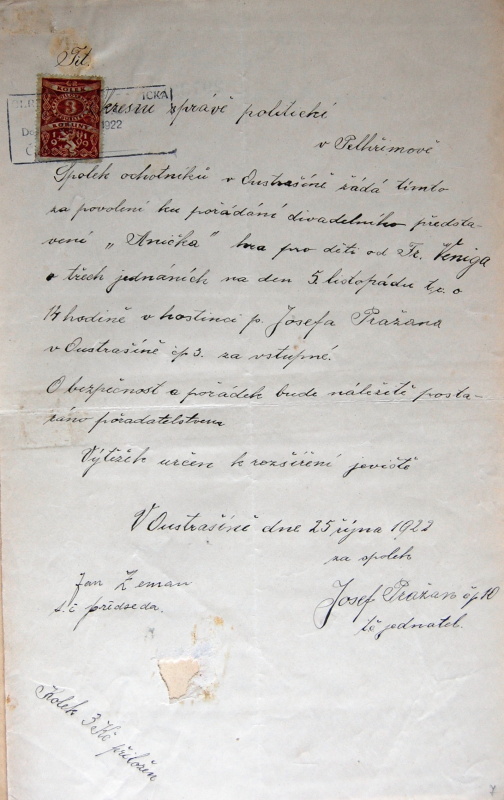 Tit.
Okresní správě politické
v Pelhřimově
Spolek ochotníků v Oustrašíně žádá tímto
za povolení ku pořádání divadelního předsta-
vení „Anička" hra pro děti od Fr. Kniga
o třech jednáních na den 5. listopádu t.r. o
17 hodině v hostinci p. Josefa Pražana
v Oustrašíně čp 3. za vstupné.
O bezpečnost a pořádek bude náležitě posta-
ráno pořadatelstvem
Výtěžek určen k rozšíření jeviště
V Oustrašíně dne 25 října 1922
za spolek
Jan Zeman
t.č předseda.
Josef Pražan čp 10
tč jednatel.
Kolek 3 Kč přiložen
KOLEK
3
KORUNY
1922
7